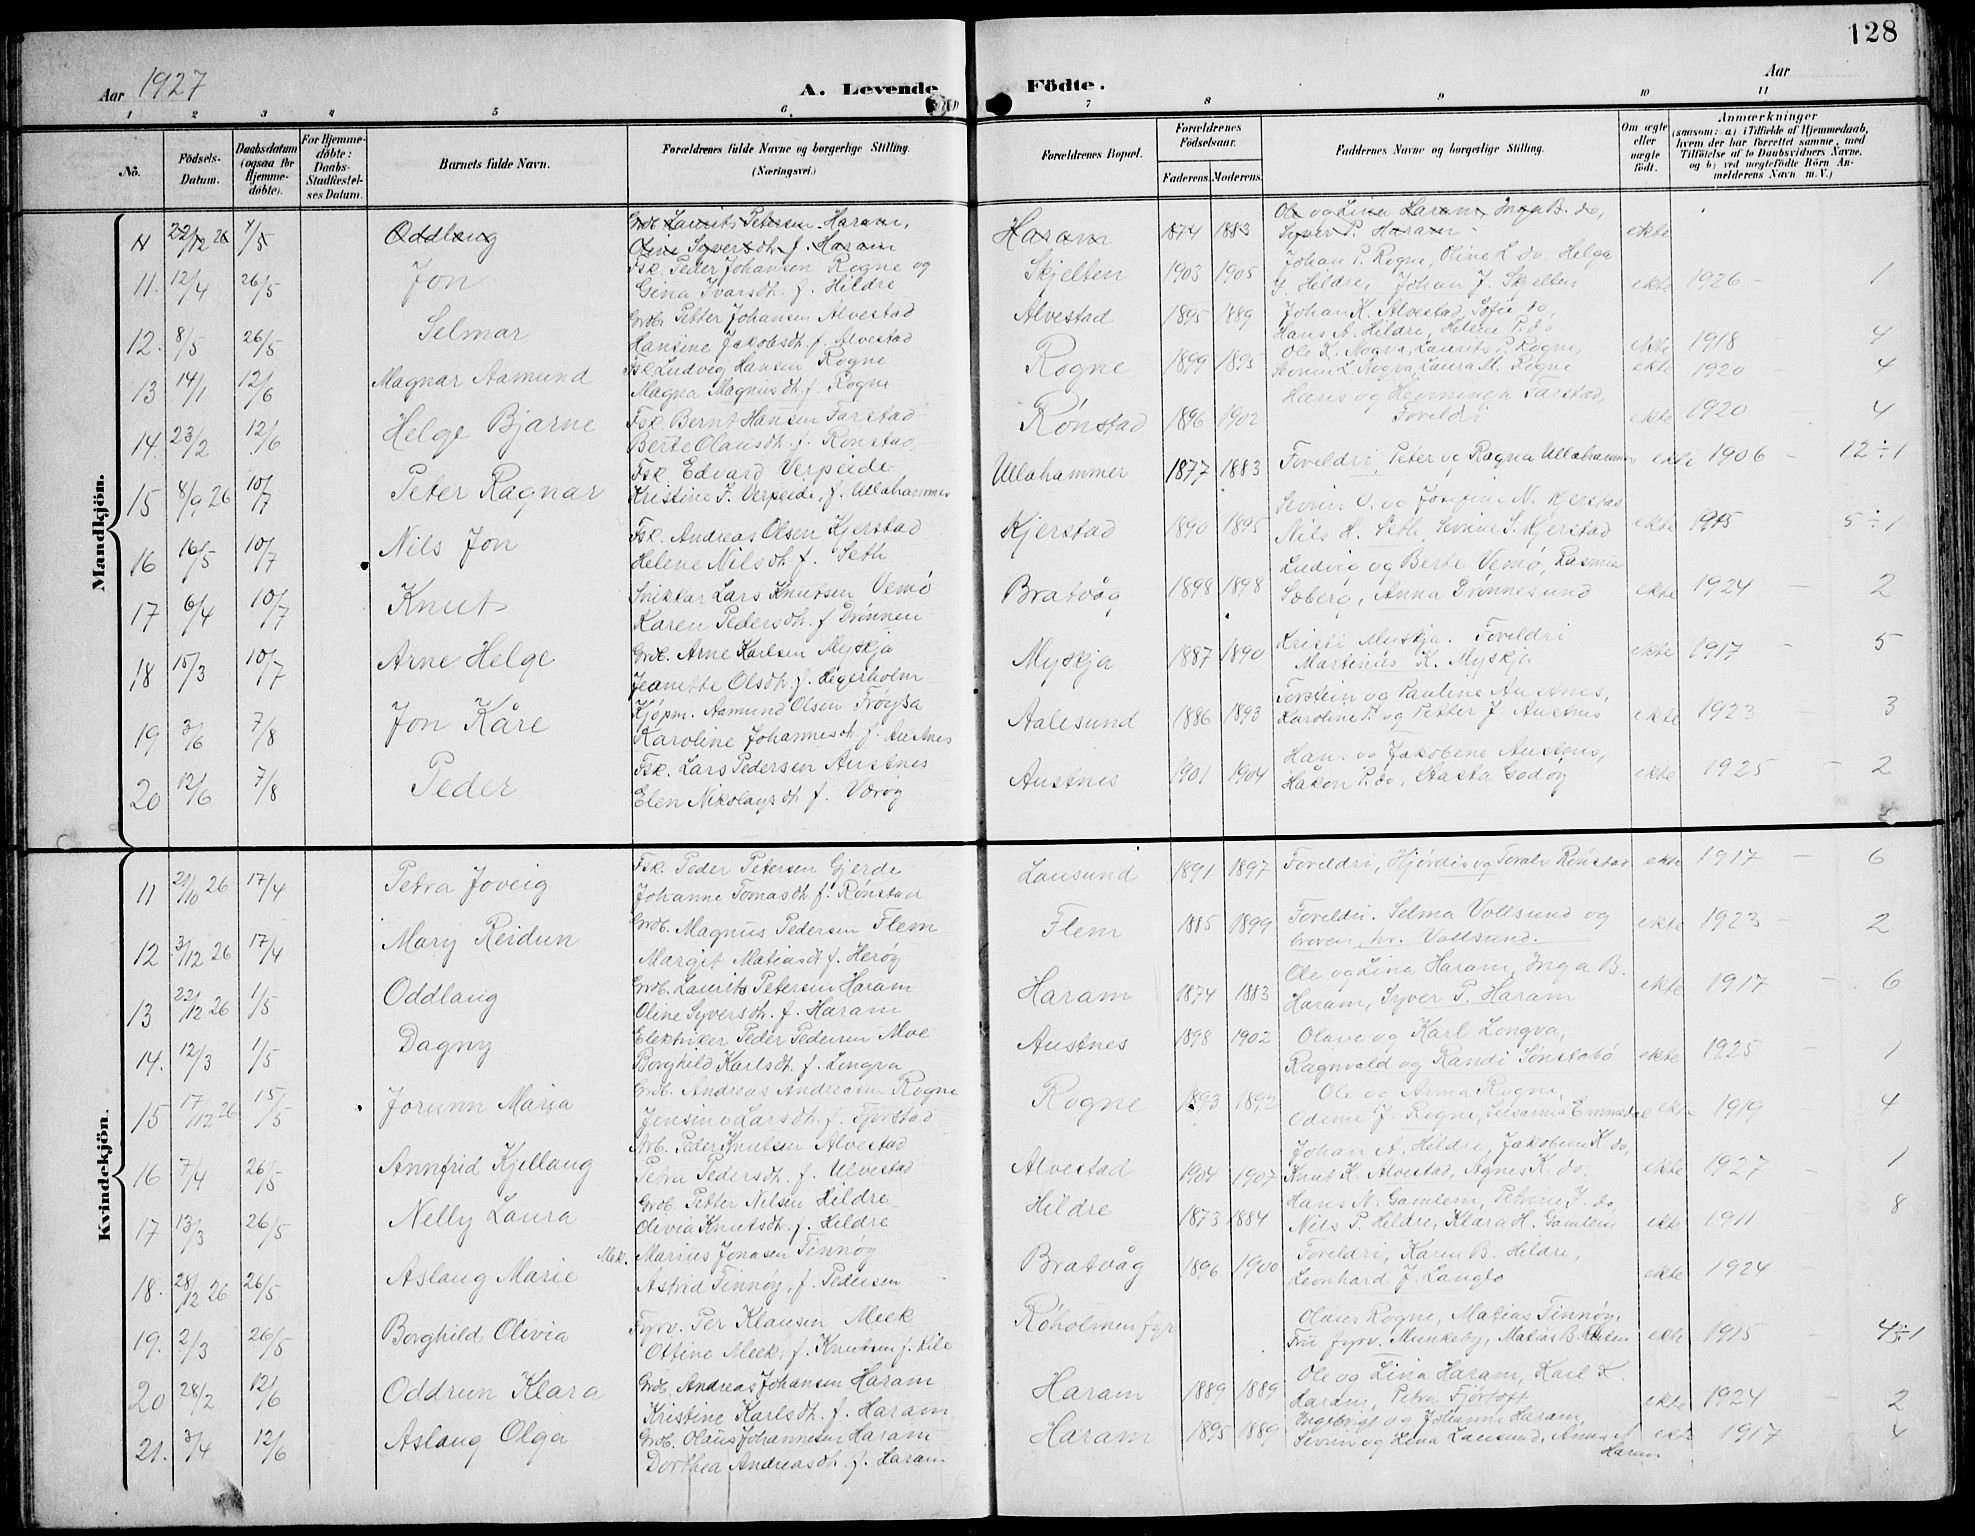 128
Aar 1927
A. Levende Födte.
Aar
1 2 3 4 5 6. 7 8 9 10 11
No. Födsels-Datum. Daabsdatum (ogsaa for Hjemmedöbte). For Hjemmedöbte: Daabs-Stadfæstelses Datum. Barnets fulde Navn. Forældrenes fulde Navne og borgerlige Stilling. (Næringsvei.) Forældrenes Bopæl. Forældrenes Födselsaar. Faderens. Moderens. Faddernes Navne og borgerlige Stilling. Om ægte eller uægte födt. Anmærkninger (saasom: a) i Tilfælde af Hjemmedaab, hvem der har forrettet samme, med Tilföielse af to Daabsvidners Navne, og b) ved uægtefödte Börn Anmelderens Navn m. V.)
Mandkjön.
11 22/12 26 1/5 Oddlaug Grdb. Laurits Petersen Haram, Haram 1874 1883 Ole og Lina Haram, Inga B. do, ekte
Oline Syversdh. f. Haram Syver P. Haram
11. 12/4 26/5 Jon Fsk. Peder Johansen Rogne og Skjelten 1903 1905 Johan P. Rogne, Oline L. do, Helga ekte 1926 - 1
Gina Ivarsdh. f. Hildre J. Hildre, Johan J. Skjelten
12. 8/5 26/5 Selmar Grdb. Petter Johansen Alvestad Alvestad 1895 1889 Johan K. Alvestad, Sofie do, ekte 1918 - 4
Hansine Jakobsdh. f. Alvestad Hans A. Hildre, Helene P. do
13 14/1 12/6 Magnar Aamund Fsk. Ludvig Hansen Rogne Rogne 1899 1895 Ole K. Nogva, Laurits P. Rogne, ekte 1920 - 4
Magna Magnusdh. f. Rogne L. Nogva, Laura M. Rogne
14. 23/2 12/6 Helge Bjarne Fsk. Bernt Hansen Farstad Rønstad 1896 1902 Hans og Henninga Farstad, ekte 1920 - 4
Berte Olausdh. f. Rønstad Foreldri
15 8/9 26 10/7 Peter Ragnar Fsk. Edvard Verpeide Ullahammer 1877 1883 Foreldri, Peter og Ragna Ullahammer ekte 1906 - 12 ÷ 1
Kristine J. Verpeide, f. Ullahammer
16 16/5 10/7 Nils Jon Fsk. Andreas Olsen Kjerstad Kjerstad 1890 1895 Sevrin O. og Josefine N. Kjerstad ekte 1915 5 ÷ 1
Helene Nilsdh. f. Seth Nils H. Seth, Sevrine S. Kjerstad
17 6/4 10/7 Knut Snikkar Lars Knutsen Vemø Bratvåg 1898 1898 Ludvig og Berte Vemø, Rasmus ekte 1924 - 2
Karen Pedersdh. f. Drønnen Søberg, Anna Drønnesund
18 15/3 10/7 Arne Helge Grdb. Arne Karlsen Myskja Myskja 1887 1890 Kristi Myskja. Foreldri ekte 1917 - 5
Jeanette Olsdh. f. Hegerholm Martinus K. Myskja
19 3/6 7/8 Jon Kåre Kjøpm. Aamund Olsen Frøysa Aalesund 1886 1893 Torstein og Pauline Austnes, ekte 1923 - 3
Karoline Johannesdh. f. Austnes Karoline P. og Petter J. Austnes
20 12/6 7/8 Peder Fsk. Lars Pedersen Austnes Austnes 1901 1904 Hans og Jakobene Austnes, ekte 1925 - 2
Elen Nikolaysdh. f. Værøy Håkon P. do, Aasta Godøy
Kvindekjön.
11 21/10 26 17/4 Petra Joveig Fsk. Peder Petersen Gjerde Lausund 1891 1897 Foreldri, Hjørdis og Torale Rønstad ekte 1917 - 6
Johanne Tomasdh. f. Rønstad
12 3/12 26 17/4 Mary Reidun Grdb. Magnus Pedersen Flem Flem 1885 1899 Foreldri. Selma Vollsund og ekte 1923 - 2
Margit Matiasdh f. Herøy hr. Vollsund.
13 22/12 26 1/5 Oddlaug Grdb. Laurits Petersen Haram Haram 1874 1883 Ole og Lina Haram, Inga B. ekte 1917 - 6
Oline Syversdh. f. Haram Haram, Syver P. Haram
14. 12/3 1/5 Dagny Elektriker Peder Pedersen Moe Austnes 1898 1902 Olave og Karl Longva, ekte 1925 - 1
Borghild Karlsdh. f. Longva Ragnvald og Randi Sønstabø
15 17/12 26 15/5 Jorunn Maria Grdb. Andreas Andreasen Rogne Rogne 1893 1892 Ole og Anna Rogne, ekte 1919 - 4
Jensine Larsdh. f. Fjørstad Odine J. Rogne,
16 7/4 26/5 Annfrid Kjellaug Arb. Peder Knutsen Alvestad Alvestad 1904 1907 Johan A. Hildre, Jakobine K. do, ekte 1927 - 1
Petra Pedersdh. f. Ulvestad Knut K. Alvestad, Agnes K. do.
17 13/3 26/5 Nelly Laura Grdb. Petter Nilsen Hildre Hildre 1873 1884 Hans N. Gamlem, Petrine J. do, ekte 1911 - 8
Olivia Knutsdh. f. Hildre Nils P. Hildre, Klara H. Gamlem
18. 28/12 26 26/5 Aslaug Marie Mek. Marius Jonasen Finnøy Bratvåg 1896 1900 Foreldri, Karen B. Hildre, ekte 1924 -
Astrid Finnøy, f. Pedersen Leonhard J. Langlo
19. 2/3 26/5 Borghild Olivia Fyrv. Per Klausen Meek Røholmen fyr Olaus Rogne, Matias Finnøy, ekte 1915 - 4 ÷ 1
Ottine Meek, f. Knutsen f. Lile Fru fyrv. Munkeby, Matias B.
20 28/2 12/6 Oddrun Klara Grdb. Andreas Johansen Haram Haram 1889 1889 Ole og Lina Haram, Karl K. ekte 1924 - 2
Kristine Karlsdh. f. Haram Haram, Petra Fjørtoft
21. 3/4 12/6 Aslaug Olga Grdb. Olaus Johannesen Haram Haram 1895 1889 Ingebrigt og Johanne Haram, ekte 1917 - 4
Dorthea Andreasdh. f. Haram. Sevrin og Lina Lausund, Anna A Haram